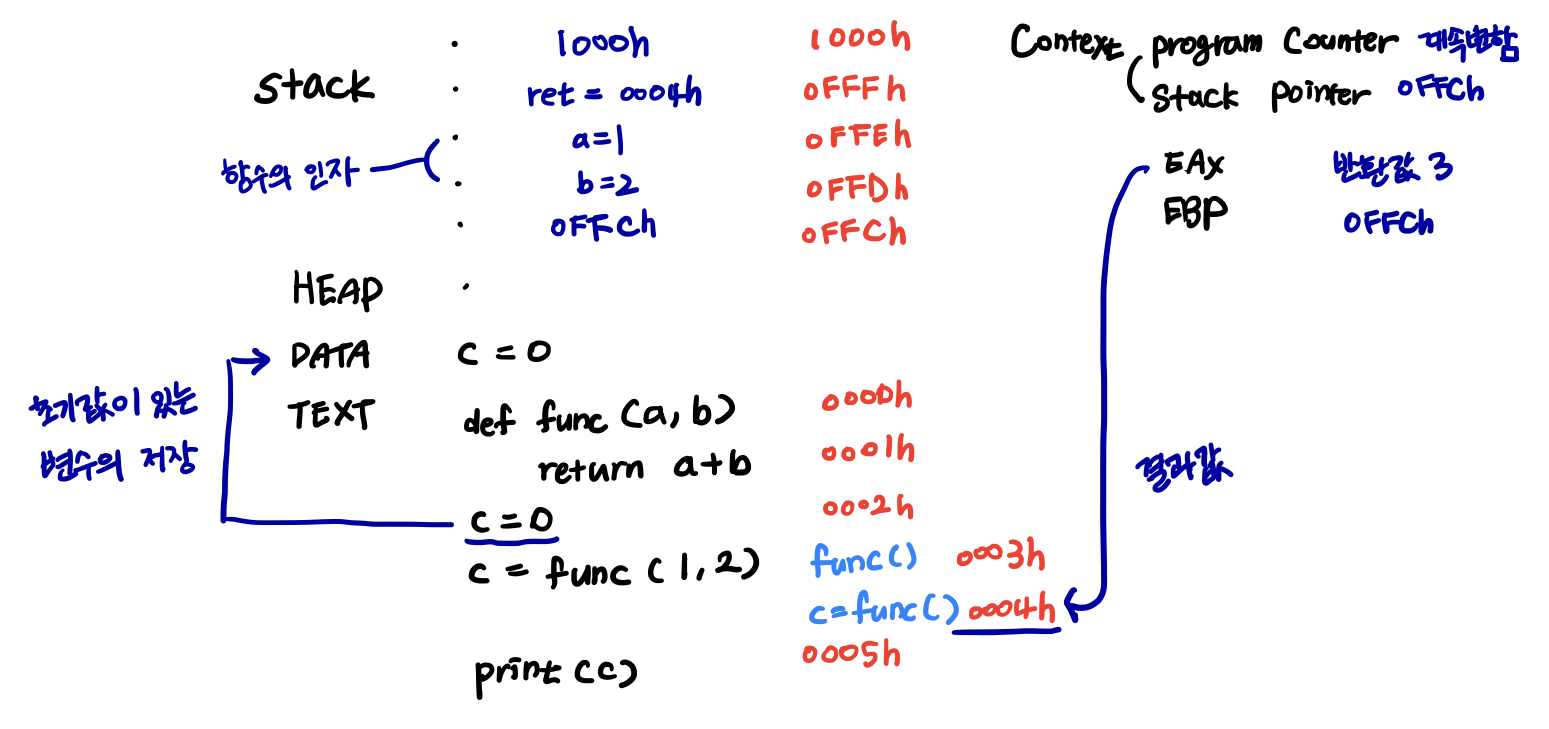 1000h 1000h Context program Counter 계속변함
stack ret = 0004h 0FFFh Stack Pointer 0FFCh
a=1 0FFEh
함수의 인자 b=2 0FFDh EAX 반환값 3
0FFCh 0FFCh EBP 0FFCh
HEAP
DATA c = 0
초기값이 있는 TEXT def func (a, b) 0000h
변수의 저장 return a+b 0001h 결과값
c = 0 0002h
c = func (1, 2) func() 0003h
c=func() 0004h
print (c) 0005h